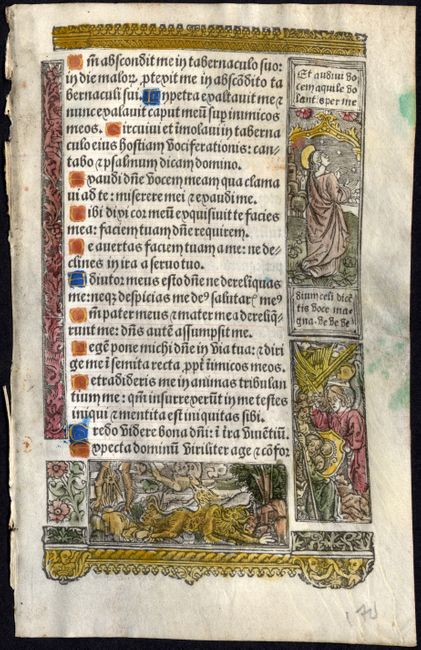 Qm̄ abscondit me in tabernaculo suo:
in die malor. ptexit me in abscōdito ta
bernaculi sui. In petra exaltavit me &
nunc exalavit caput meū sup inimicos
meos. Circuivi et imolavi in taberna
culo eius hostiam vociferationis: can-
tabo & psalmum dicam domino.
Exaudi dn̄e vocem meam qua clama
vi ad te: miserere mei & exaudi me.
Tibi dixi cor meū exquisivit te facies
mea: faciem tuam dn̄e requirem.
Ne avertas faciem tuam a me: ne de-
clines in ira a servo tuo.
Adiutor meus esto dn̄e ne derelinquas
me: neq; despicias me de9 salutar. me9
Qm̄ pater meus & mater mea dereliq̄-
runt me: dn̄s autē assumpsit me.
Legē pone michi dn̄e in via tua: & diri
ge me ī semita recta ppt̄ inimicos meos.
Ne tradideris me in animas tribulan
tium me: qm̄ insurrexerūt in me testes
iniqui & mentita est iniquitas sibi.
Credo videre bona dn̄i: ī t̄ra viventiū.
Expecta dominū viriliter age & cōfor
Et audivi vo
cem aquile vo
lantis per me
dium celi dicē
tis voce ma
gna. ve ve ve